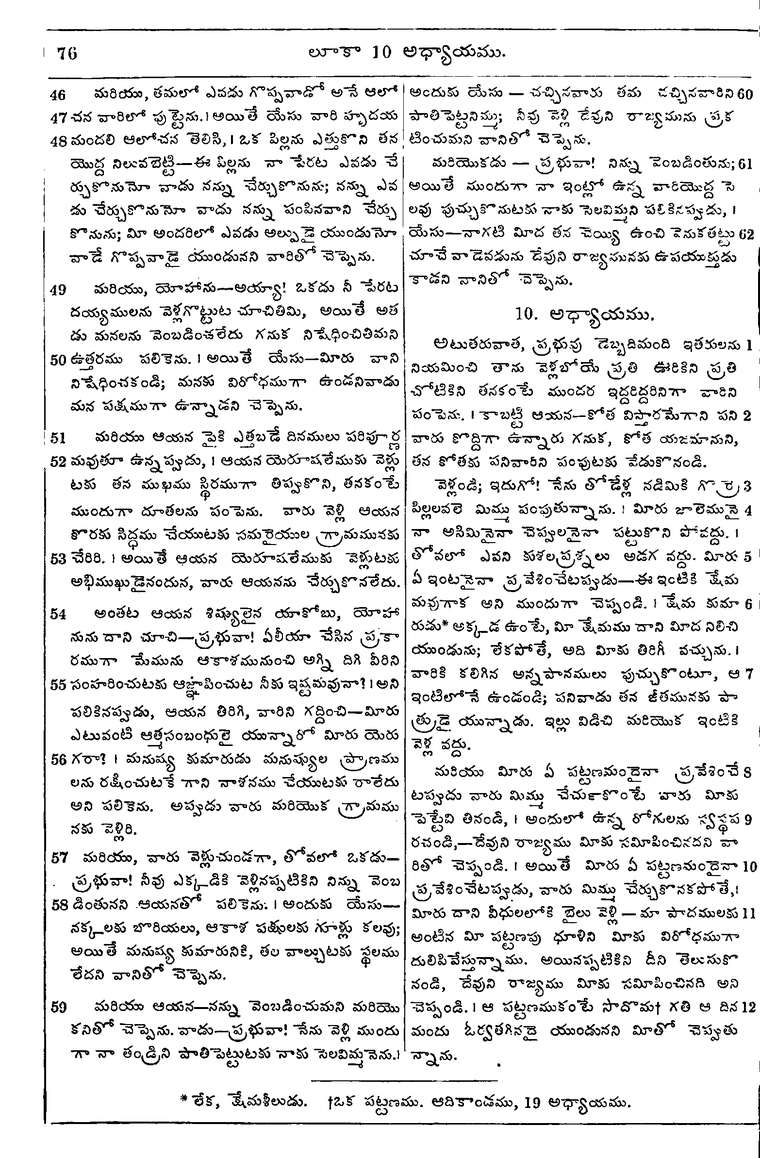 76 లూకా 10 అధ్యాయము.
46 మరియు, తమలో ఎవడు గొప్పవాడో అనే ఆలో
47 చన వారిలో పుట్టెను. । అయితే యేసు వారి హృదయ
48 మందలి ఆలోచన తెలిసి, । ఒక పిల్లను ఎత్తుకొని తన
యొద్ద నిలువబెట్టి—ఈ పిల్లను నా పేరట ఎవడు చే
ర్చుకొనునో వాడు నన్ను చేర్చుకొనును; నన్ను ఎవ
డు చేర్చుకొనునో వాడు నన్ను పంపినవాని చేర్చు
కొనును; మీ అందరిలో ఎవడు అల్పుడై యుండునో
వాడే గొప్పవాడై యుండునని వారితో చెప్పెను.
49 మరియు, యోహాను—అయ్యా! ఒకడు నీ పేరట
దయ్యములను వెళ్లగొట్టుట చూచితిమి, అయితే అత
డు మనలను వెంబడించలేదు గనుక నిషేధించితిమని
50 ఉత్తరము పలికెను. । అయితే యేసు—మీరు వాని
నిషేధించకండి; మనకు విరోధముగా ఉండనివాడు
మన పక్షముగా ఉన్నాడని చెప్పెను.
51 మరియు ఆయన పైకి ఎత్తబడే దినములు పరిపూర్ణ
52 మవుతూ ఉన్నప్పుడు, । ఆయన యెరూషలేముకు వెళ్లు
టకు తన ముఖము స్థిరముగా తిప్పుకొని, తనకంటే
ముందుగా దూతలను పంపెను. వారు వెళ్లి ఆయన
కొరకు సిద్ధము చేయుటకు సమరైయుల గ్రామమునకు
53 చేరిరి. । అయితే ఆయన యెరూషలేముకు వెళ్లుటకు
అభిముఖుడైనందున, వారు ఆయనను చేర్చుకొనలేదు.
54 అంతట ఆయన శిష్యులైన యాకోబు, యోహా
నును దాని చూచి—ప్రభువా! ఏలీయా చేసిన ప్రకా
రముగా మేమును ఆకాశమునుంచి అగ్ని దిగి వీరిని
55 సంహరించుటకు ఆజ్ఞాపించుట నీకు ఇష్టమవునా? । అని
పలికినప్పుడు, ఆయన తిరిగి, వారిని గద్దించి—మీరు
ఎటువంటి ఆత్మసంబంధులై యున్నారో మీరు యెరు
56 గరా? । మనుష్య కుమారుడు మనుష్యుల ప్రాణము
లను రక్షించుటకే గాని నాశనము చేయుటకు రాలేదు
అని పలికెను. అప్పుడు వారు మరియొక గ్రామము
నకు వెళ్లిరి.
57 మరియు, వారు వెళ్లుచుండగా, తోవలో ఒకడు—
ప్రభువా! నీవు ఎక్కడికి వెళ్లినప్పటికిని నిన్ను వెంబ
58 డింతునని ఆయనతో పలికెను. । అందుకు యేసు—
నక్కలకు బొరియలు, ఆకాశ పక్షులకు గూళ్లు కలవు;
అయితే మనుష్య కుమారునికి, తల వాల్చుటకు స్థలము
లేదని వానితో చెప్పెను.
59 మరియు ఆయన—నన్ను వెంబడించుమని మరియొ
కనితో చెప్పెను. వాడు—ప్రభువా! నేను వెళ్లి ముందు
గా నా తండ్రిని పాతిపెట్టుటకు నాకు సెలవిమ్మనెను. ।
అందుకు యేసు — చచ్చినవారు తమ చచ్చినవారిని 60
పాతిపెట్టనిమ్ము; నీవు వెళ్లి దేవుని రాజ్యమును ప్రక
టించుమని వానితో చెప్పెను.
మరియొకడు — ప్రభువా! నిన్ను వెంబడింతును; 61
అయితే ముందుగా నా ఇంట్లో ఉన్న వారియొద్ద సె
లవు పుచ్చుకొనుటకు నాకు సెలవిమ్మని పలికినప్పుడు, ।
యేసు—నాగటి మీద తన చెయ్యి ఉంచి వెనుకతట్టు 62
చూచే వాడెవడును దేవుని రాజ్యమునకు ఉపయుక్తుడు
కాడని వానితో చెప్పెను.
10. అధ్యాయము.
అటుతరువాత, ప్రభువు డెబ్బదిమంది ఇతరులను 1
నియమించి తాను వెళ్లబోయే ప్రతి ఊరికిని ప్రతి
చోటికిని తనకంటే ముందర ఇద్దరిద్దరినిగా వారిని
పంపెను. । కాబట్టి ఆయన—కోత విస్తారమేగాని పని 2
వారు కొద్దిగా ఉన్నారు గనుక, కోత యజమానుని,
తన కోతకు పనివారిని పంపుటకు వేడుకొనండి.
వెళ్లండి; ఇదుగో! నేను తోడేళ్ల నడిమికి గొర్రె 3
పిల్లలవలె మిమ్ము పంపుతున్నాను. । మీరు జాలెనునై 4
నా అసిమినైనా చెప్పులనైనా పట్టుకొని పోవద్దు. ।
తోవలో ఎవని కుశలప్రశ్నలు అడగ వద్దు. మీరు 5
ఏ ఇంటనైనా ప్రవేశించేటప్పుడు—ఈ ఇంటికి క్షేమ
మవుగాక అని ముందుగా చెప్పండి. । క్షేమ కుమా 6
రుడు* అక్కడ ఉంటే, మీ క్షేమము దాని మీద నిలిచి
యుండును; లేకపోతే, అది మీకు తిరిగీ వచ్చును. ।
వారికి కలిగిన అన్నపానములు పుచ్చుకొంటూ, ఆ 7
ఇంటిలోనే ఉండండి; పనివాడు తన జీతమునకు పా
త్రుడై యున్నాడు. ఇల్లు విడిచి మరియొక ఇంటికి
వెళ్ల వద్దు.
మరియు మీరు ఏ పట్టణమందైనా ప్రవేశించే 8
టప్పుడు వారు మిమ్ము చేర్చుకొంటే వారు మీకు
పెట్టేవి తినండి, । అందులో ఉన్న రోగులను స్వస్థప 9
రచండి,—దేవుని రాజ్యము మీకు సమీపించినదని వా
రితో చెప్పండి. । అయితే మీరు ఏ పట్టణమందైనా 10
ప్రవేశించేటప్పుడు, వారు మిమ్ము చేర్చుకొనకపోతే, ।
మీరు దాని వీధులలోకి బైలు వెళ్లి — మా పాదములకు 11
అంటిన మీ పట్టణపు ధూళిని మీకు విరోధముగా
దులిపివేస్తున్నాము. అయినప్పటికిని దీని తెలుసుకొ
నండి, దేవుని రాజ్యము మీకు సమీపించినది అని
చెప్పండి. । ఆ పట్టణముకంటే సొదొమ† గతి ఆ దిన 12
మందు ఓర్వతగినదై యుండునని మీతో చెప్పుతు
న్నాను.
* లేక, క్షేమశీలుడు. †ఒక పట్టణము. ఆదికాండము, 19 అధ్యాయము.